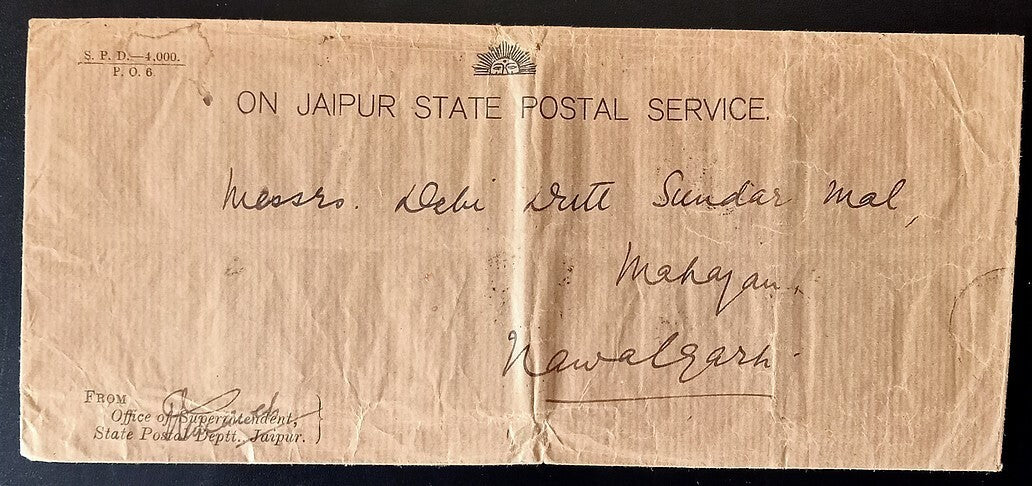 S. P. D.—4,000.
P. O. 6
ON JAIPUR STATE POSTAL SERVICE.
Messrs. Debi Dutt Sundar Mal,
Mahajan,
Nawalgarh.
FROM
Office of Superintendent,
State Postal Deptt. Jaipur.